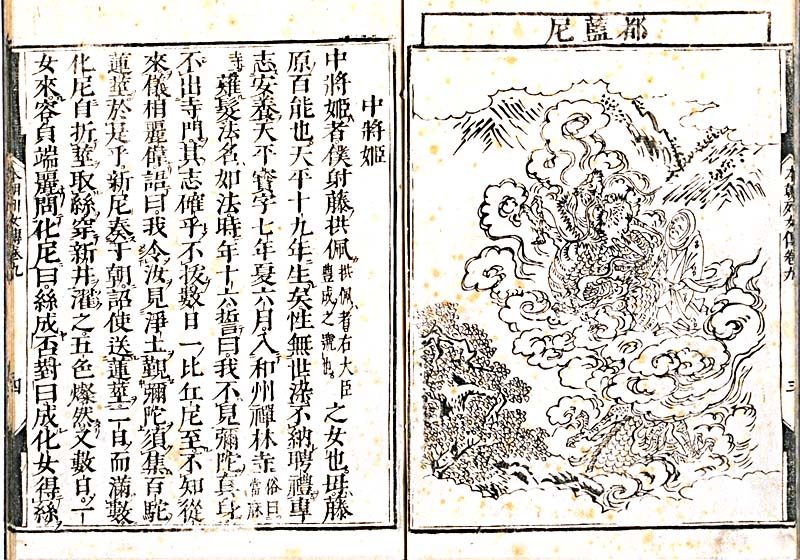 都藍尼
本朝列女傳卷九
三
中將姬
中將姬者僕射藤拱佩拱佩者右大臣豐成之號也之女也母藤
原百能也天平十九年生矣性無世染不納聘禮專
志安養天平寶字七年夏六月入和州禪林寺俗曰當麻
寺薙髮法名如法時年十六誓曰我不見彌陀真身
不出寺門其志確乎不拔數日一比丘尼至不知從
來儀相麗偉語曰我令汝見淨土觀彌陀須集百駝
蓮莖於是乎新尼奏于朝詔使送蓮莖二日而滿數
化尼自折莖取絲穿新井濯之五色燦然又數日一
女來容貞端麗問化尼曰絲成否對曰成化女得絲
本朝列女傳卷九
四